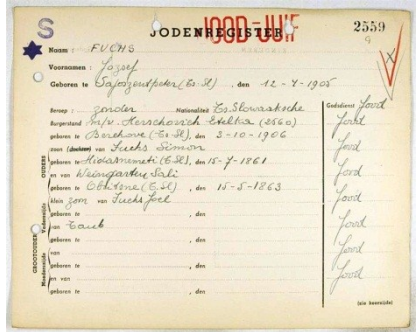 S JODENREGISTER JOOD-JUIF 2559
9
Naam : FUCHS
Voornamen : Jozsef
Geboren te Sajoszentpeter (Ts. Sl) , den 12-7-1905
Beroep : zonder Nationaliteit Ts. Slowaaksche Godsdienst Jood
Burgerstand m/v. Herschovich Etelka (2560) Jood
geboren te Berehove (Ts-Sl) , den 3-10-1906
zoon (dochter) van Fuchs Simon Jood
geboren te Hidasnemeti (T.Sl), den 15-7-1861
en van Weingarten Sali Jood
geboren te (T.Sl) , den 15-5-1863
klein zoon van Fuchs Joel Jood
geboren te , den
van Taub Jood
geboren te , den
van Jood
geboren te , den
en van Jood
geboren te , den
OUDERS
GROOTOUDERS
Vaderszijde
Moederszijde
(zie keerzijde)